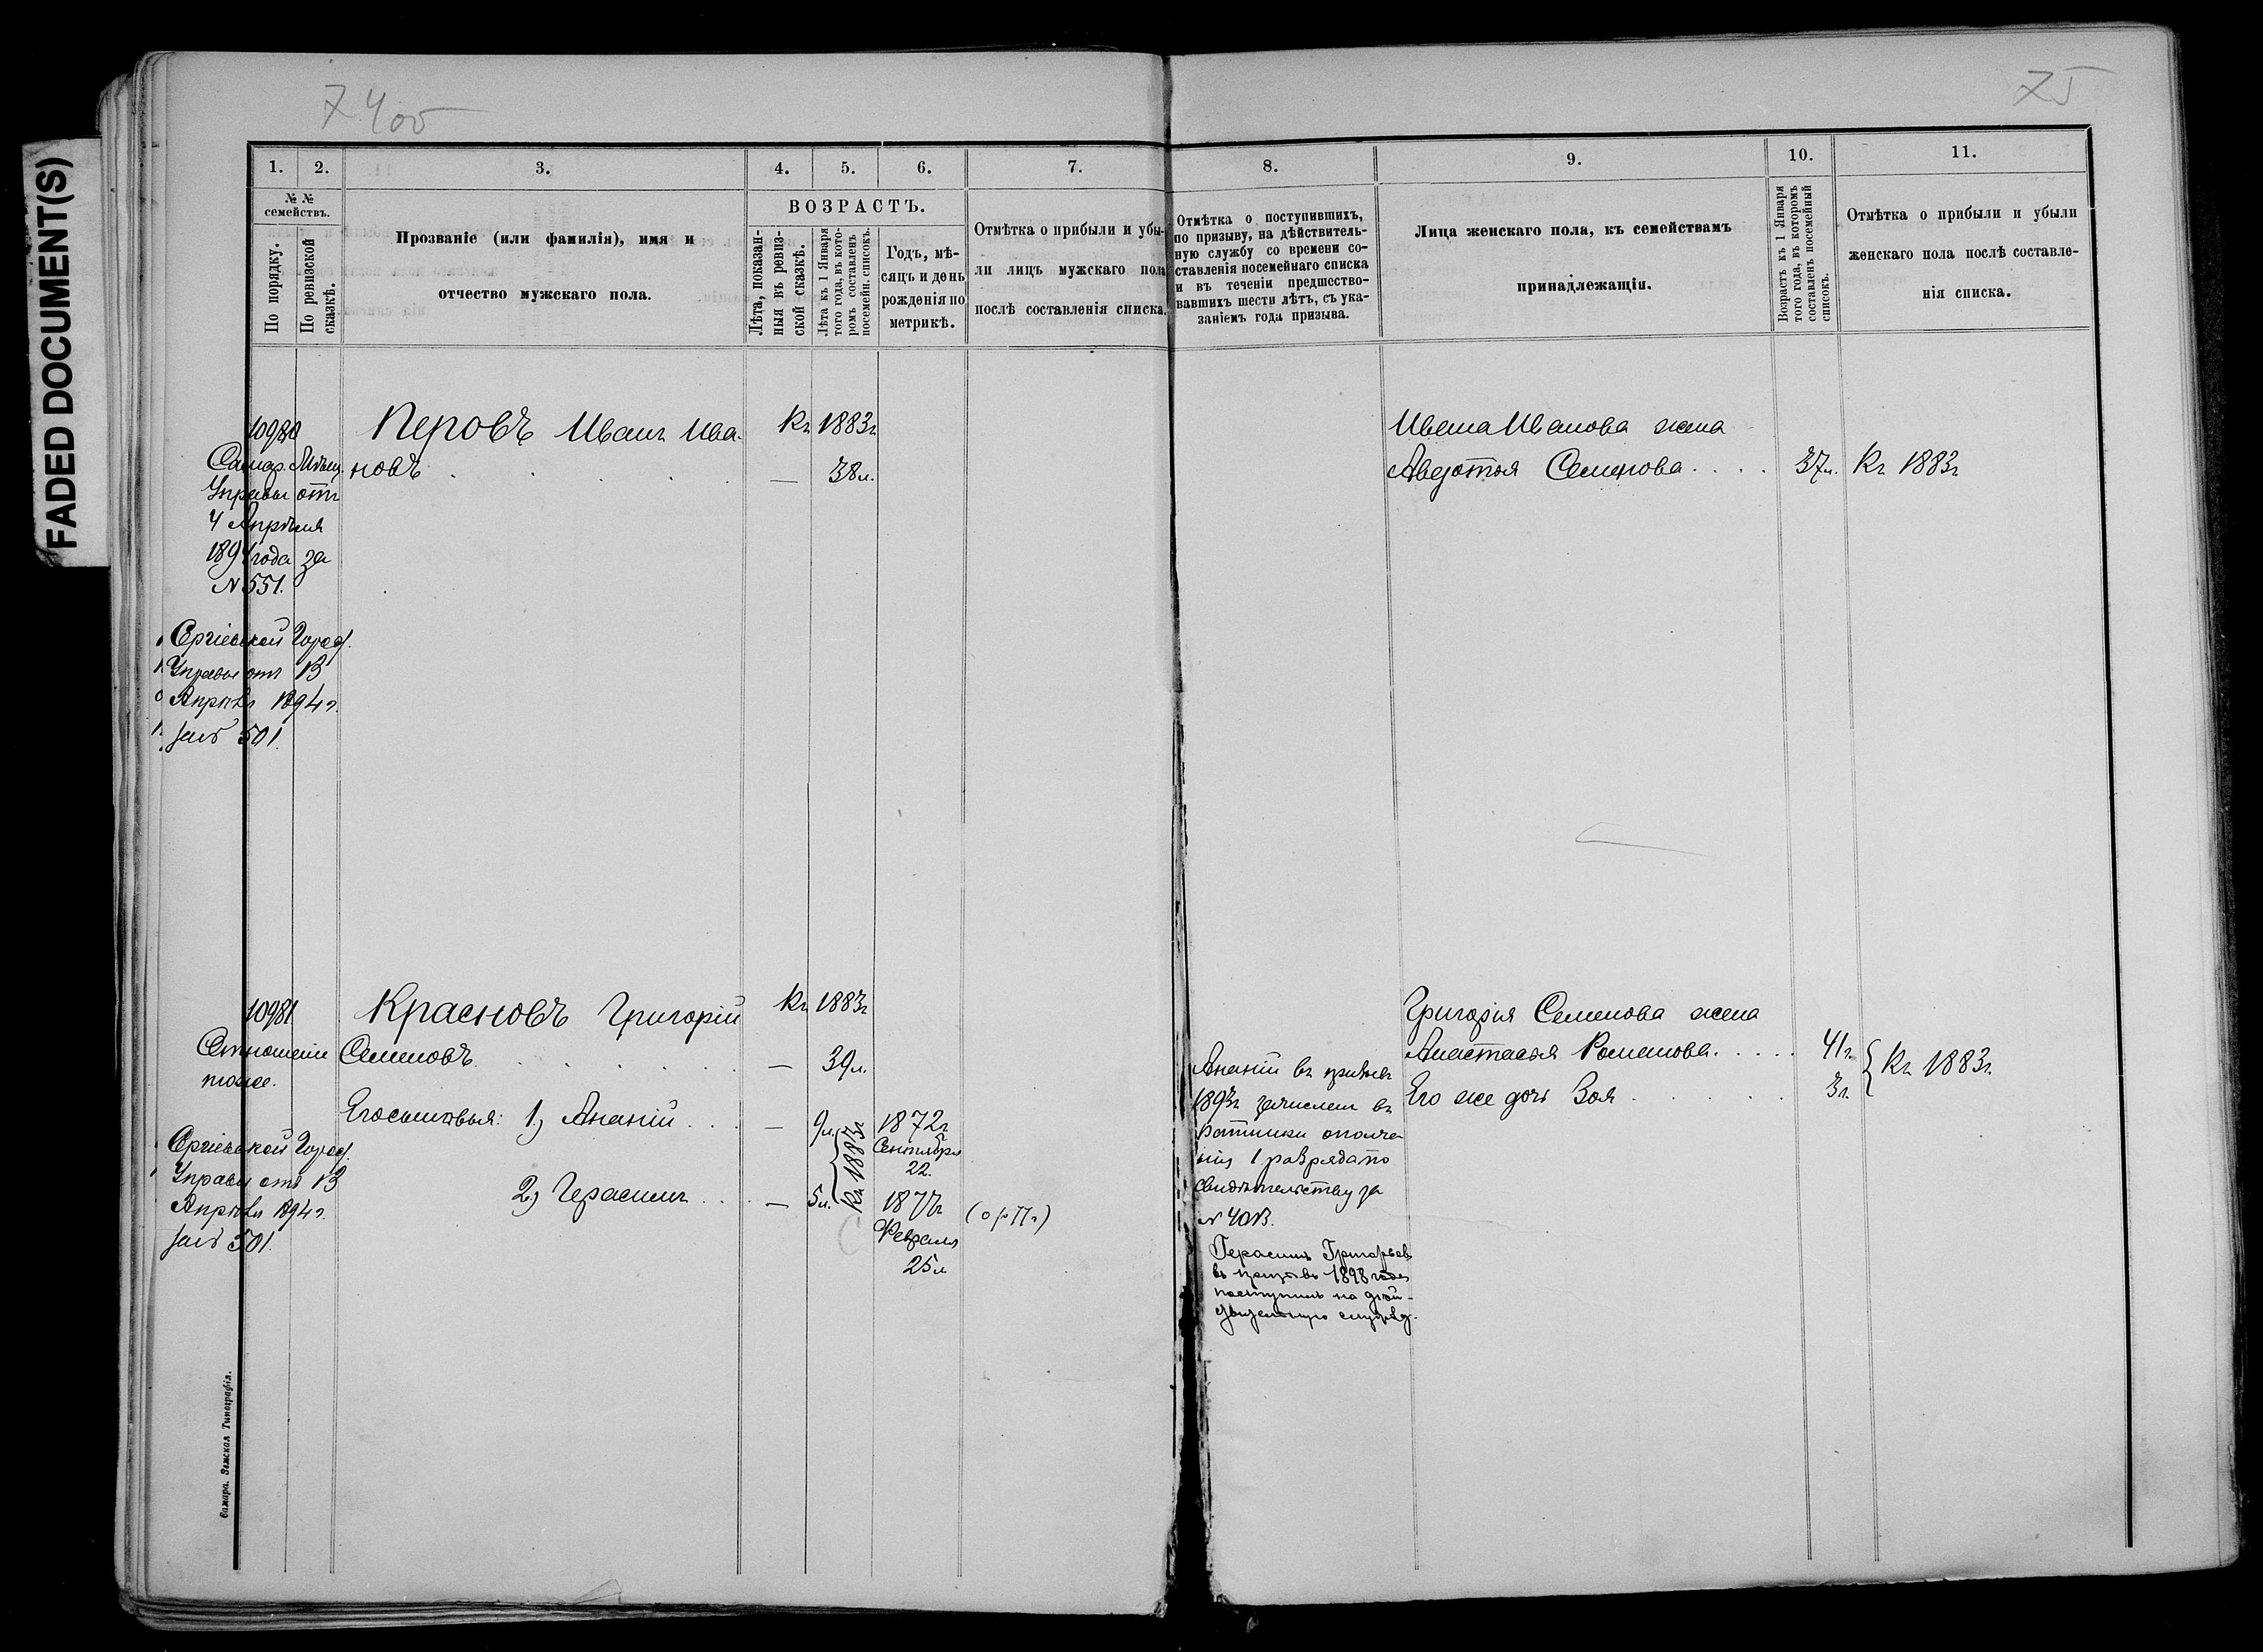 FADED DOCUMENT(S)
74об
75
1.
2.
3.
4.
5.
6.
7.
8.
9.
10.
11.
№ №
семействъ.
По порядку.
По ревизской
сказкѣ.
Прозваніе (или фамилія), имя и
отчество мужскаго пола.
ВОЗРАСТЪ.
Лѣта, показан-
ныя въ ревиз-
ской сказкѣ.
Лѣта къ 1 Января
того года, въ кото-
ромъ составленъ
посемейн. списокъ.
Годъ, мѣ-
сяцъ и день
рожденія по
метрикѣ.
Отмѣтка о прибыли и убы-
ли лицъ мужскаго пола
послѣ составленія списка.
Отмѣтка о поступившихъ,
по призыву, на дѣйствитель-
ную службу со времени со-
ставленія посемейнаго списка
и въ теченіи предшество-
вавшихъ шести лѣтъ, съ ука-
заніемъ года призыва.
Лица женскаго пола, къ семействамъ
принадлежащія.
Возрастъ къ 1 Января
того года, въ которомъ
составленъ посемейный
списокъ.
Отмѣтка о прибыли и убыли
женскаго пола послѣ составле-
нія списка.
10980
Перовъ Иванъ Ива-
новъ
Къ 1883г
— 38л.
Самар. Мѣщ.
Управы отъ
4 Апрѣля
1894 года за
№ 551.
Сергіевской Город.
Управы отъ 13
Апрѣля 1894г.
за № 501.
Ивана Иванова жена
Авдотья Семенова . . . . 37л. Къ 1883г
10981
Красновъ Григорій
Семеновъ
Къ 1883г
— 39л.
Отношеніе
тоже.
Сергіевской Город.
Управы отъ 13
Апрѣля 1894г.
за № 501.
Его сыновья: 1, Ананій . . . — 9л.
1872г
Сентября
22.
2, Герасимъ . . . — 5л.
Къ 1883г
1877г
Февраля
25л
Ананій въ призывъ
1893г зачисленъ въ
ратники ополче-
нія 1 разряда по
свидѣтельству за
№ 4013.
Герасимъ Григорьевъ
въ призывъ 1898 года
поступилъ на дѣй-
ствительную службу.
Григорія Семенова жена
Анастасья Романова . . . . . 41г.
Его же дочь Зоя . . . . . . 3г.
Къ 1883г.
Самара. Земская Типографія.